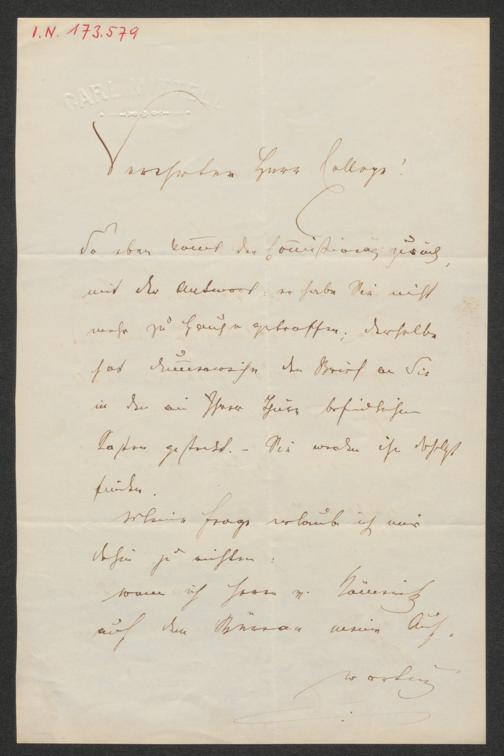 I.N. 173.579
CARL
Verehrter Herr College!
So eben kommt der Commissionär zurück,
mit der Antwort: er habe Sie nicht
mehr zu Hause getroffen; derselbe
hat dummerweise den Brief an Sie
in den an Ihrer Thüre befindlichen
Kasten gesteckt. – Sie werden ihn dort
finden.
Meine Frage erlaube ich mir
dahin zu richten:
wann ich Herrn v.
auf dem Büreau meine Auf-
wartung